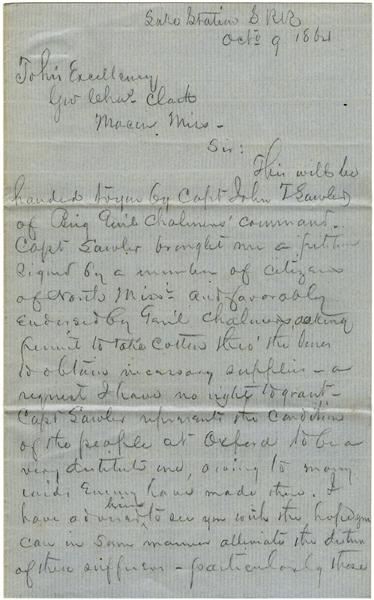 Station S RR
Octo 9 1864
To his Excellency
Gov Chas. Clark
Macon Miss -
Sir:
This will be
handed to you by Capt John T Lawler
of Brig Gen'l Chalmers' command.
Capt Lawler brought me a petition
signed by a number of citizens
of North Miss. and favorably
endorsed by Gen'l Chalmers asking
permit to take Cotton thro' the lines
to obtain necessary supplies - a
request I have no right to grant -
Capt Lawler represents the condition
of the people at Oxford to be a
very destitute one, owing to many
raids Enemy have made there. I
have advised him to see you with the hope you
can in some manner alleviate the distress
of these sufferers - particularly those